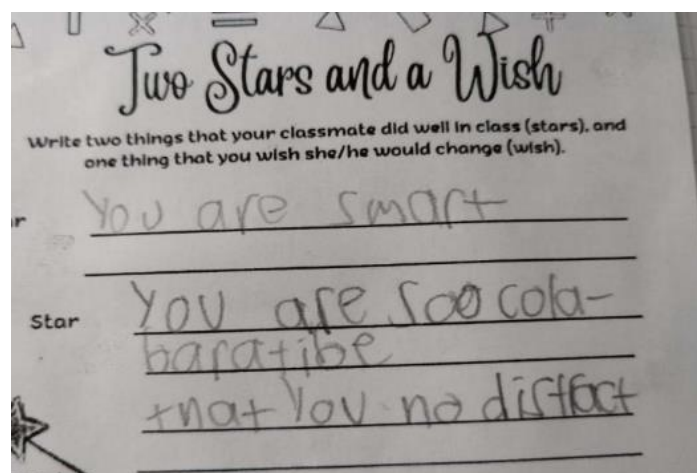 Two Stars and a Wish
Write two things that your classmate did well in class (stars), and
one thing that you wish she/he would change (wish).
r You are smart
Star You are soo cola-
baratibe
that You no distract